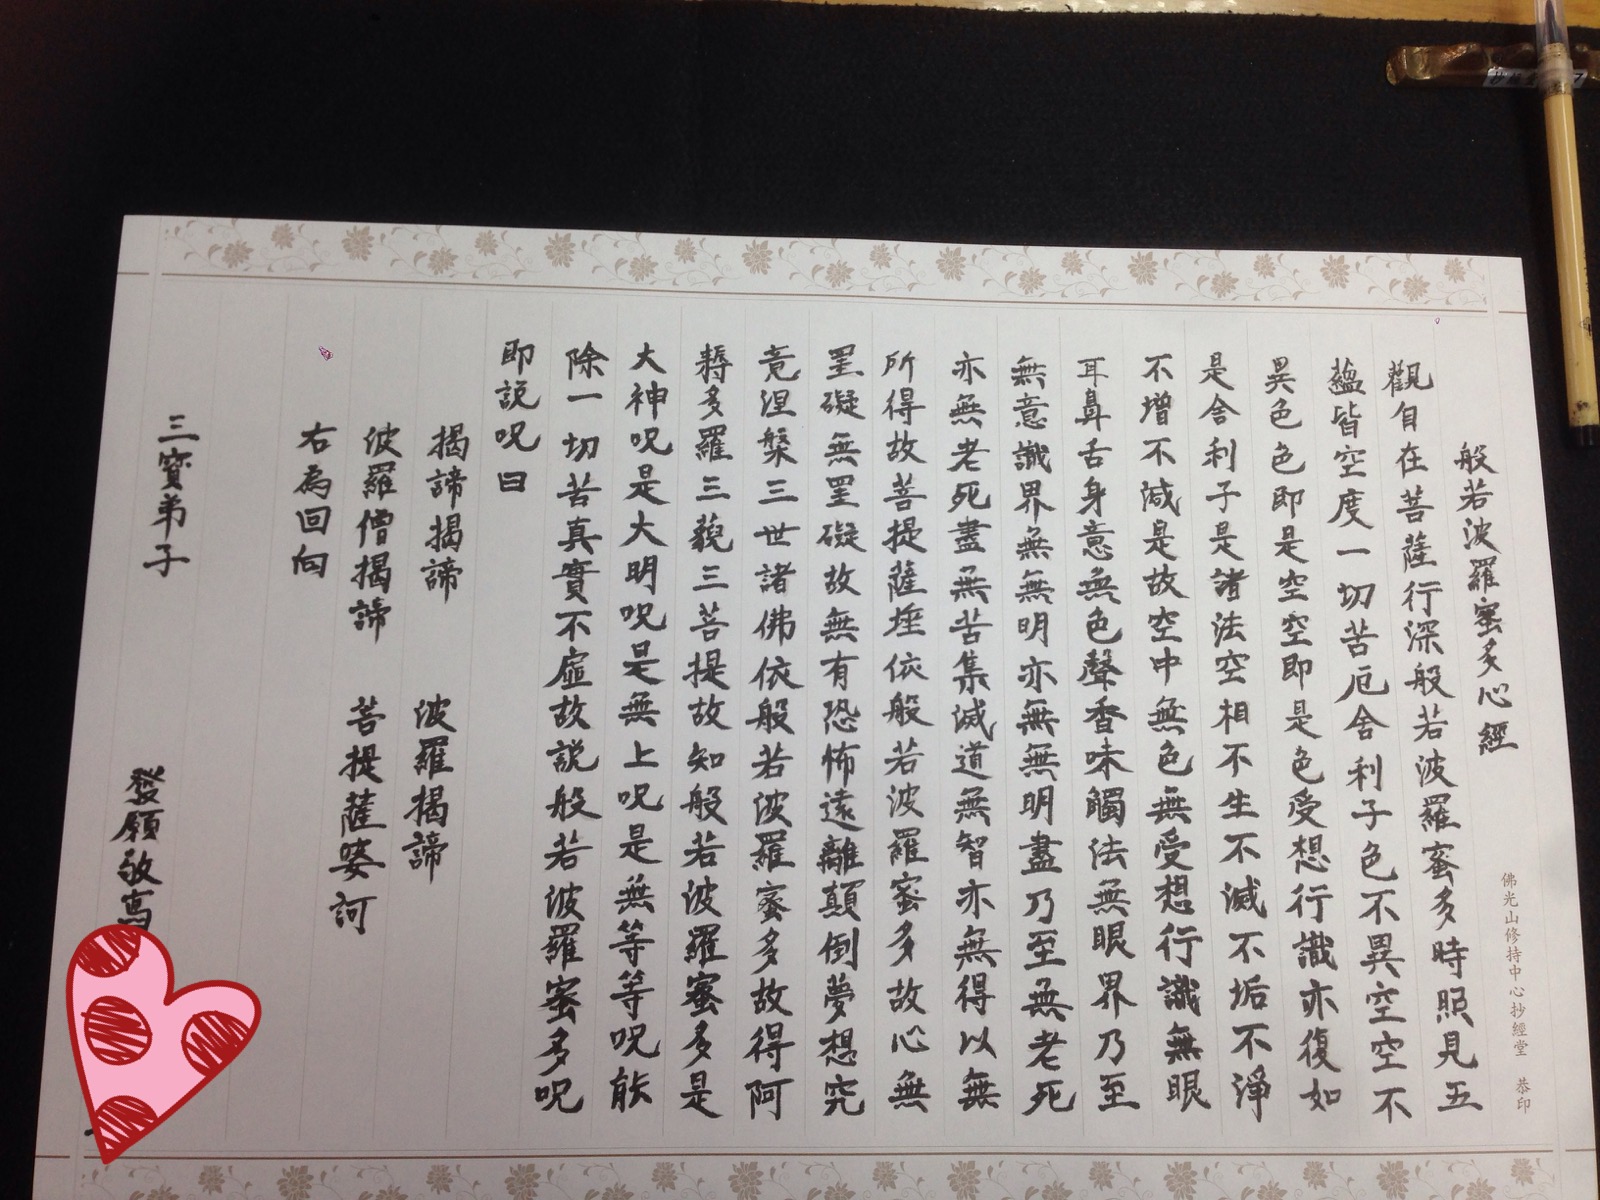 般若波羅蜜多心經
觀自在菩薩行深般若波羅蜜多時照見五
蘊皆空度一切苦厄舍利子色不異空空不
異色色即是空空即是色受想行識亦復如
是舍利子是諸法空相不生不滅不垢不淨
不增不減是故空中無色無受想行識無眼
耳鼻舌身意無色聲香味觸法無眼界乃至
無意識界無無明亦無無明盡乃至無老死
亦無老死盡無苦集滅道無智亦無得以無
所得故菩提薩埵依般若波羅蜜多故心無
罣礙無罣礙故無有恐怖遠離顛倒夢想究
竟涅槃三世諸佛依般若波羅蜜多故得阿
耨多羅三藐三菩提故知般若波羅蜜多是
大神呪是大明呪是無上呪是無等等呪能
除一切苦真實不虛故說般若波羅蜜多呪
即說呪曰
揭諦揭諦 波羅揭諦
波羅僧揭諦 菩提薩婆訶
右為回向
三寶弟子 發願敬寫
佛光山修持中心抄經堂 恭印